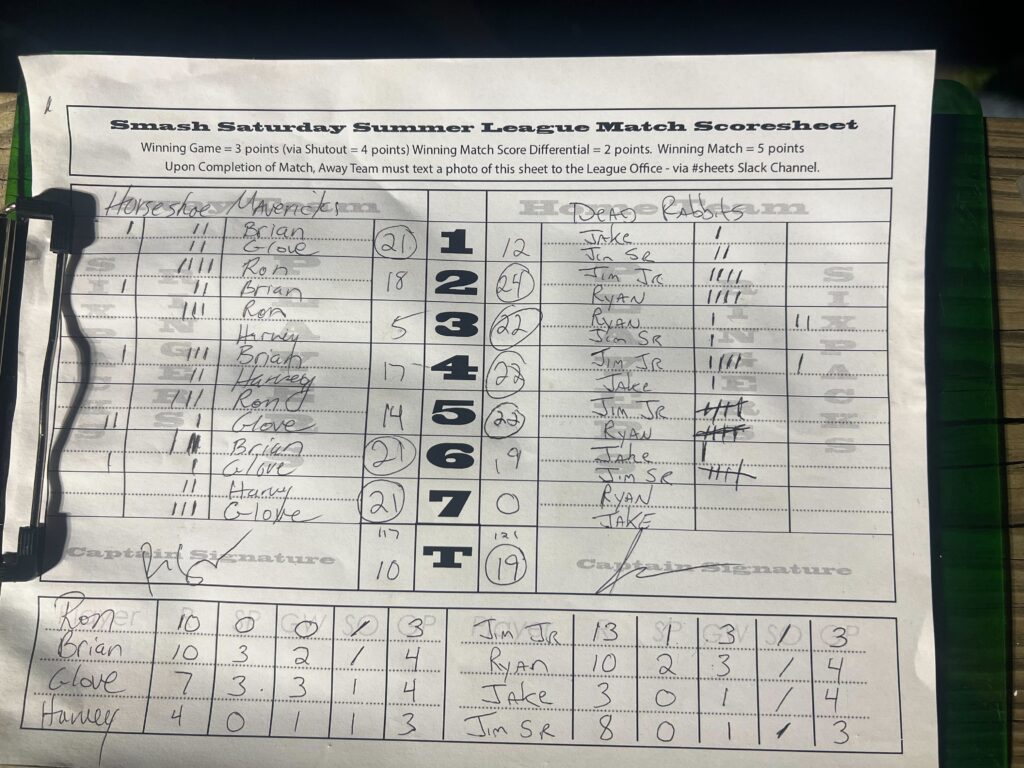 Smash Saturday Summer League Match Scoresheet
Winning Game = 3 points (via Shutout = 4 points) Winning Match Score Differential = 2 points. Winning Match = 5 points
Upon Completion of Match, Away Team must text a photo of this sheet to the League Office - via #sheets Slack Channel.
Horseshoe Mavericks DEAD RABBITS
Brian 21 1 12 JAKE
Glove JIM SR
Ron 18 2 24 JIM JR
Brian RYAN
Ron 5 3 22 RYAN
Harvey JIM SR
Brian 17 4 22 JIM JR
Harvey JAKE
Ron 14 5 22 JIM JR
Glove RYAN
Brian 21 6 19 JAKE
Glove JIM SR
Harvy 21 7 0 RYAN
Glove JAKE
117 121
Captain Signature 10 T 19 Captain Signature
Ron 10 0 0 / 3 JIM JR 13 1 3 / 3
Brian 10 3 2 / 4 RYAN 10 2 3 / 4
Glove 7 3 3 1 4 JAKE 3 0 1 / 4
Harvey 4 0 1 1 3 JIM SR 8 0 1 / 3